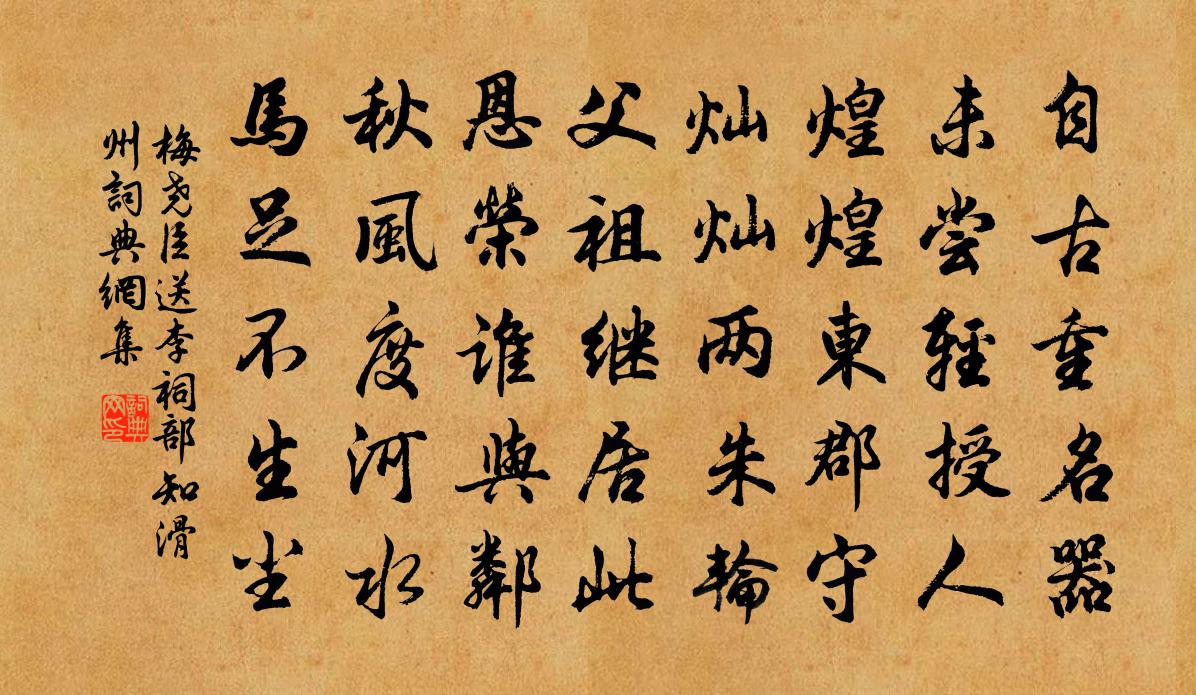 自古重名器
未尝輕授人
煌煌東郡守
灿灿两朱輪
父祖继居此
恩榮誰與鄰
秋風度河水
馬足不生尘
梅尧臣送李祠部知滑
州詞典網集
詞典
网印